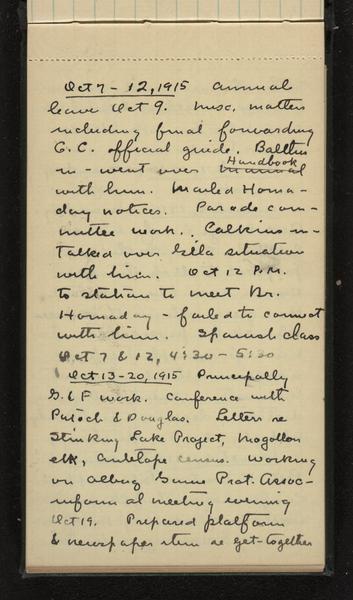 Oct 7 - 12, 1915 Annual
leave Oct 9. Misc. matters
including final forwarding
G. C. official guide.
in - went over Manual Handbook
with him. Mailed Horna-
day notices. Parade com-
mittee work. Calkins in -
Talked over Gila situation
with him. Oct 12 P.M.
to station to meet Dr.
Hornaday - failed to connect
with him. Spanish class
Oct 7 & 12, 4:30 - 5:30
Oct 13-20, 1915 Principally
G & F work. Conference with
& Douglas. Letters re
Stinking Lake Project, Mogollon
elk, antelope census. Working
on Albuq Game Prot. Assoc -
informal meeting evening
Oct 19. Prepared platform
& newspaper item re get-together